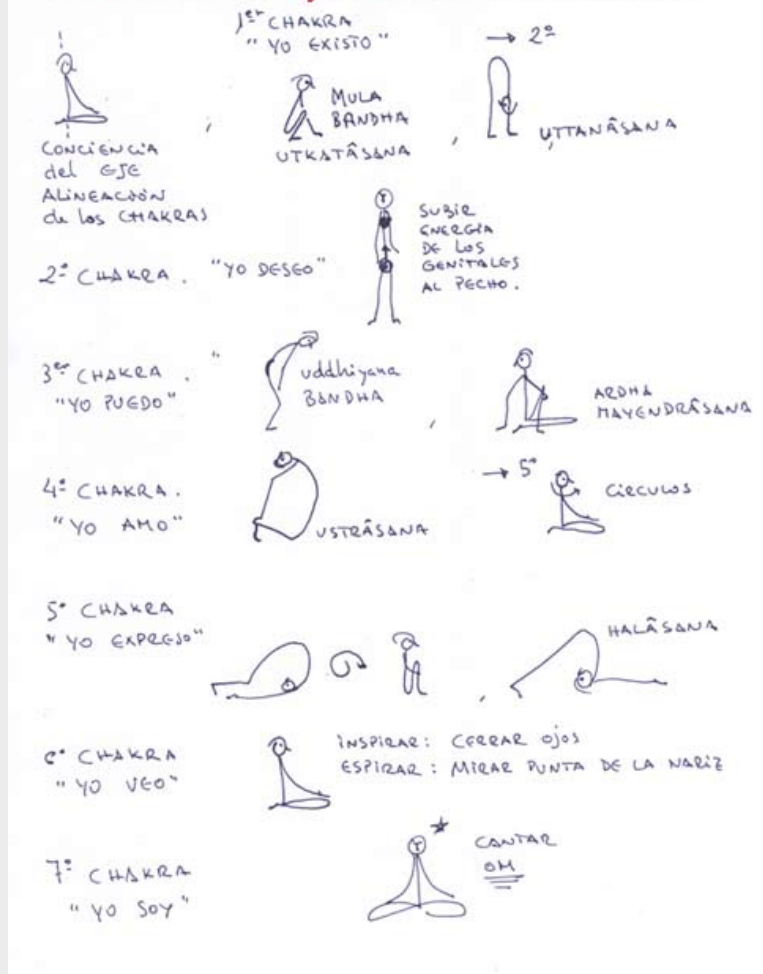 1er CHAKRA
"YO EXISTO"
→ 2º
MULA
BANDHA
UTKATÂSANA
,
UTTANÂSANA
CONCIENCIA
del EJE
ALINEACIÓN
de los CHAKRAS
,
2º CHAKRA. "YO DESEO"
SUBIR
ENERGÍA
DE LOS
GENITALES
AL PECHO.
3er CHAKRA. "
"YO PUEDO"
uddhiyana
BANDHA
,
ARDHA
MAYENDRÂSANA
4º CHAKRA.
"YO AMO"
USTRÂSANA
→ 5º
CIRCULOS
5º CHAKRA
"YO EXPRESO"
,
HALÂSANA
6º CHAKRA
"YO VEO"
INSPIRAR: CERRAR OJOS
ESPIRAR: MIRAR PUNTA DE LA NARIZ
7º CHAKRA
"YO SOY"
CANTAR
OM